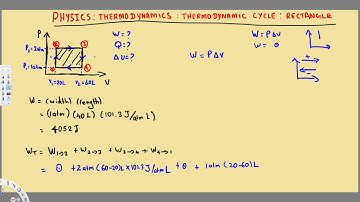 PHYSICS: THERMODYNAMICS: THERMODYNAMIC CYCLE: RECTANGLE
P
P₂=2atm
P₁=1atm
V₁=20L V₂=60L V
W = ?
Q = ?
ΔU = ?
W = PΔV
W = PΔV
W = 0
W = (width)(length)
= (1atm)(40L)(101.3 J/atm L)
= 4052 J
W_T = W₁→₂ + W₂→₃ + W₃→₄ + W₄→₁
= 0 + 2atm (60-20)L × 101.3 J/atm L + 0 + 1atm (20-60)L